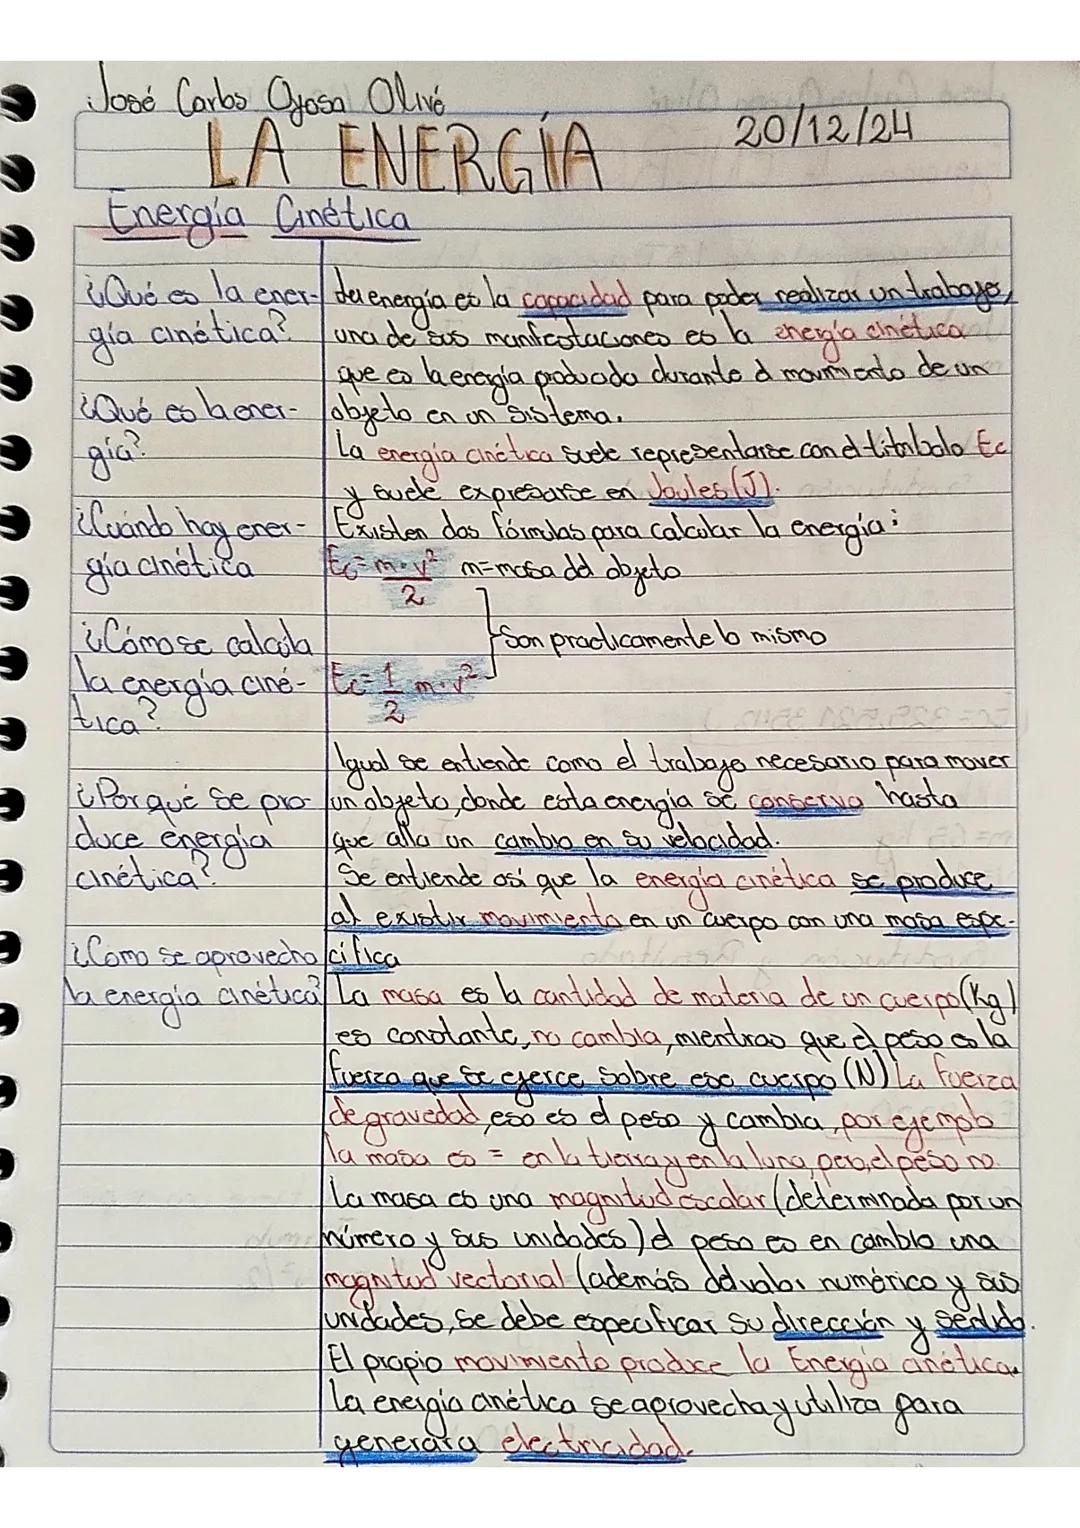 José Carlos Ojosa Olivé
LA ENERGÍA
20/12/24
Energía Cinética
¿Qué es la ener-
gía cinética?
¿Qué es la ener-
gía?
¿Cuándo hay ener-
gía cinética
¿Cómo se calcula
la energía ciné-
tica?
¿Por qué se pro-
duce energía
cinética?
¿Como se aprovecha
la energía cinética?
energía es la capacidad para poder realizar un trabajo,
una de sus manifestaciones es la energía cinética
que es la energía producida durante el movimiento de un
objeto en un sistema.
La energía cinética suele representarse con el Ec
y suele expresarse en Joules (J).
Existen dos fórmulas para calcular la energía:
Ec=m·v²/2 m=masa del objeto
Son practicamente lo mismo
Ec=1/2 m·v²
Igual se entiende como el trabajo necesario para mover
un objeto, donde esta energía se conserva hasta
que alla un cambio en su velocidad.
Se entiende así que la energía cinética se produce
al existir movimiento en un cuerpo con una masa espe-
cífica
La masa es la cantidad de materia de un cuerpo (Kg)
es constante, no cambia, mientras que el peso es la
fuerza que se ejerce sobre ese cuerpo (N) La fuerza
de gravedad, eso es el peso y cambia, por ejemplo
la masa es = en la tierra y en la luna, pero, el peso no.
La masa es una magnitud escalar (determinada por un
número y sus unidades) el peso es en cambio una
magnitud vectorial (además del valor numérico y sus
unidades, se debe especificar su dirección y sentido.
El propio movimiento produce la Energía cinética.
La energía cinética se aprovecha y utiliza para
generara electricidad.